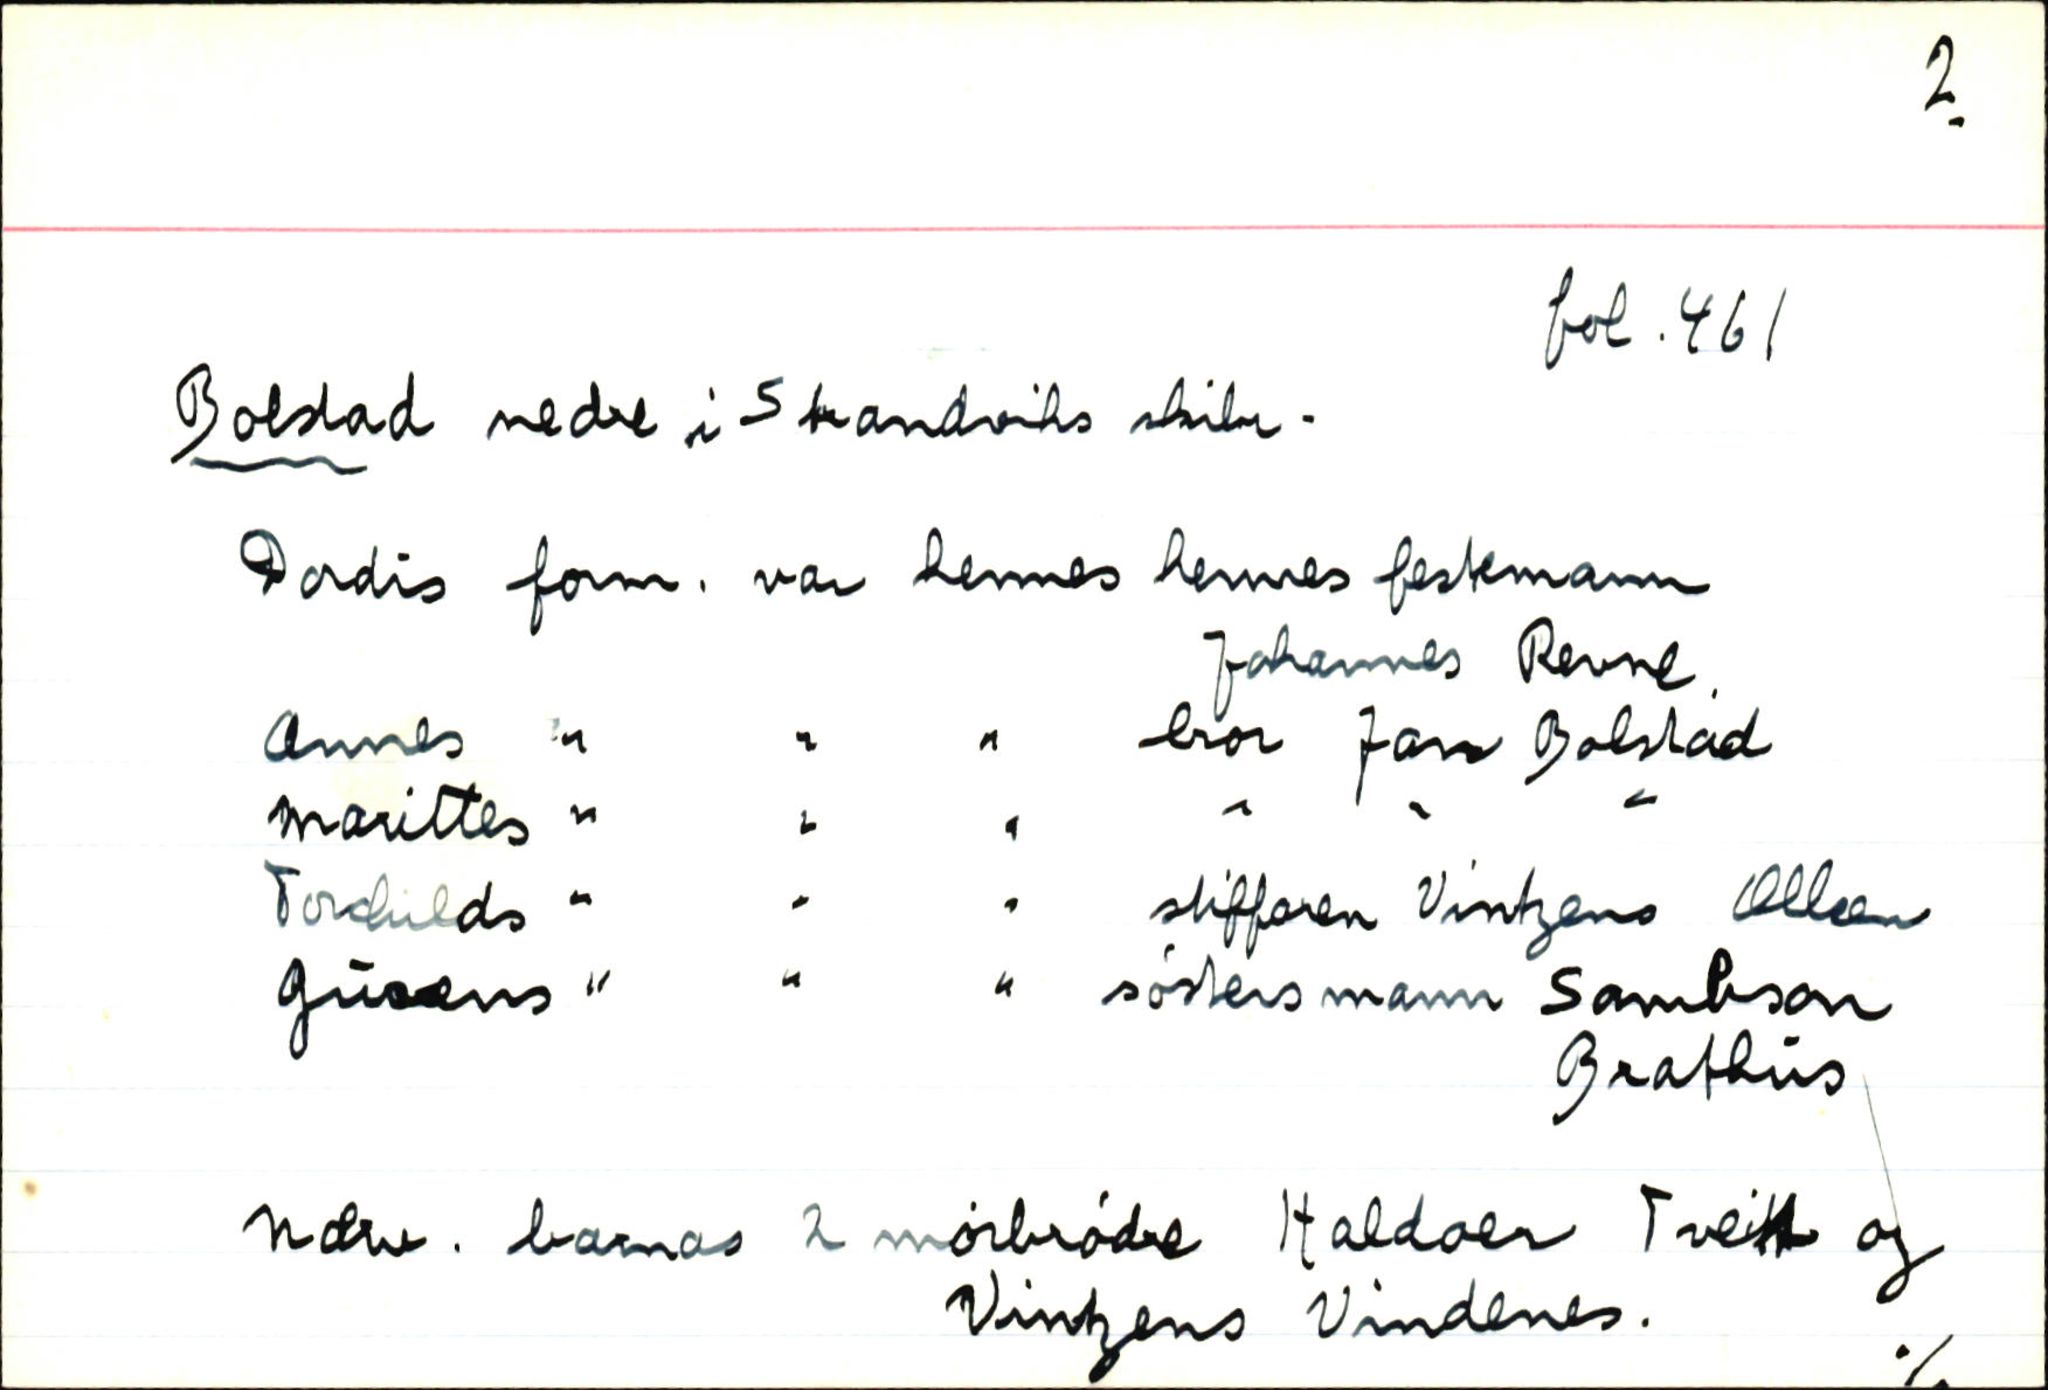 2
fol. 461
Bolstad nedre i Strandviks skibr.
Dordis form. var hennes hennes festemann
Johannes Revne.
Annes " " " bror Jan Bolstad
Marittes " " " " " "
Torchilds " " " stiffaren Vintzens Ollsen
" " " søstersmann Sambson
Brathus
Nærv. barnas 2 morbrødre Haldoer Tveit og
Vintzens Vindenes.
./.